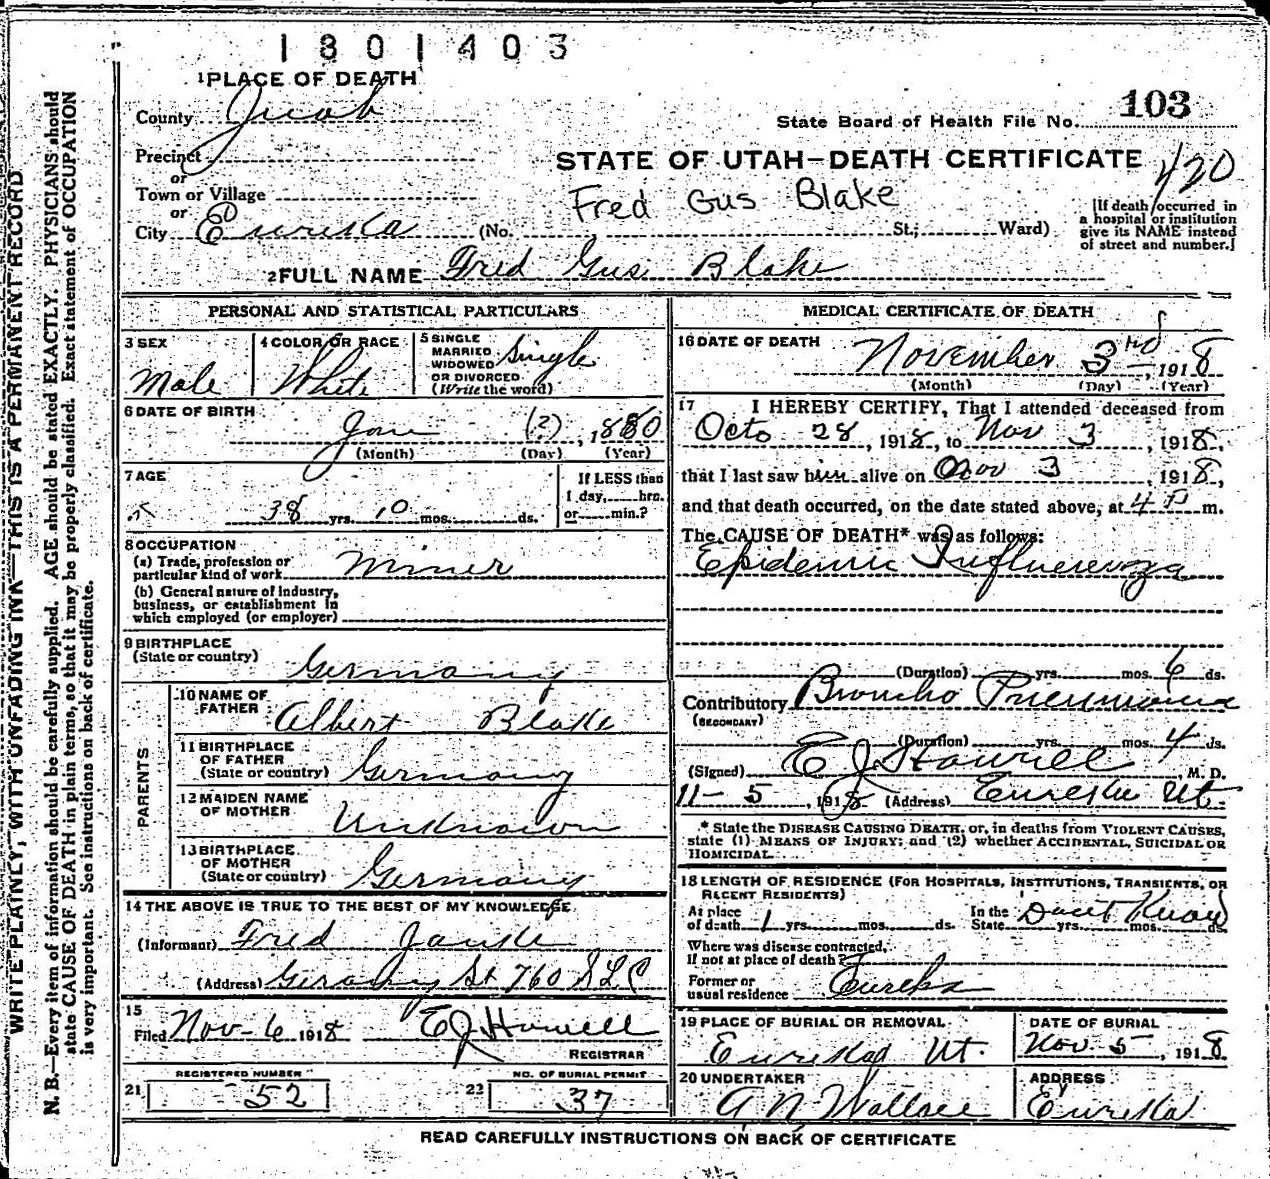 1801403
1 PLACE OF DEATH
County Juab
103
State Board of Health File No.
Precinct
or
STATE OF UTAH—DEATH CERTIFICATE
420
Town or Village
or
Fred Gus Blake
City Eureka (No. St.; Ward)
[If death occurred in
a hospital or institution
give its NAME instead
of street and number.]
2 FULL NAME Fred Gus Blake
PERSONAL AND STATISTICAL PARTICULARS
3 SEX
Male
4 COLOR OR RACE
White
5 SINGLE
MARRIED
WIDOWED
OR DIVORCED
(Write the word)
Single
6 DATE OF BIRTH
Jan (?), 1880
(Month) (Day) (Year)
7 AGE
38 yrs. 10 mos. ds.
If LESS than
1 day, hrs.
or min.?
8 OCCUPATION
(a) Trade, profession or
particular kind of work Miner
(b) General nature of industry,
business, or establishment in
which employed (or employer)
9 BIRTHPLACE
(State or country) Germany
PARENTS
10 NAME OF
FATHER Albert Blake
11 BIRTHPLACE
OF FATHER
(State or country) Germany
12 MAIDEN NAME
OF MOTHER Unknown
13 BIRTHPLACE
OF MOTHER
(State or country) Germany
14 THE ABOVE IS TRUE TO THE BEST OF MY KNOWLEDGE
(Informant) Fred
(Address) St 760 S L C
15
Filed Nov-6 1918 E J Howell
REGISTRAR
REGISTERED NUMBER
21 52
NO. OF BURIAL PERMIT
22 37
MEDICAL CERTIFICATE OF DEATH
16 DATE OF DEATH
November 3rd, 1918
(Month) (Day) (Year)
17 I HEREBY CERTIFY, That I attended deceased from
Octo 28, 1918, to Nov 3, 1918,
that I last saw him alive on Nov 3, 1918,
and that death occurred, on the date stated above, at 4 P m.
The CAUSE OF DEATH* was as follows:
Epidemic Influenza
(Duration) yrs. mos. 6 ds.
Contributory Broncho Pneumonia
(SECONDARY)
(Duration) yrs. mos. 4 ds.
(Signed) E J Howell, M. D.
11-5, 1918 (Address) Eureka Ut.
* State the DISEASE CAUSING DEATH, or, in deaths from VIOLENT CAUSES,
state (1) MEANS OF INJURY; and (2) whether ACCIDENTAL, SUICIDAL OR
HOMICIDAL.
18 LENGTH OF RESIDENCE (FOR HOSPITALS, INSTITUTIONS, TRANSIENTS, OR
RECENT RESIDENTS)
At place
of death 1 yrs. mos. ds.
In the
State yrs. mos. ds.
Dont Know
Where was disease contracted,
If not at place of death?
Former or
usual residence Eureka
19 PLACE OF BURIAL OR REMOVAL
Eureka Ut.
DATE OF BURIAL
Nov. 5, 1918
20 UNDERTAKER
A N Wallace
ADDRESS
Eureka
READ CAREFULLY INSTRUCTIONS ON BACK OF CERTIFICATE
WRITE PLAINLY, WITH UNFADING INK—THIS IS A PERMANENT RECORD
N. B.—Every item of information should be carefully supplied. AGE should be stated EXACTLY. PHYSICIANS should
state CAUSE OF DEATH in plain terms, so that it may be properly classified. Exact statement of OCCUPATION
is very important. See instructions on back of certificate.